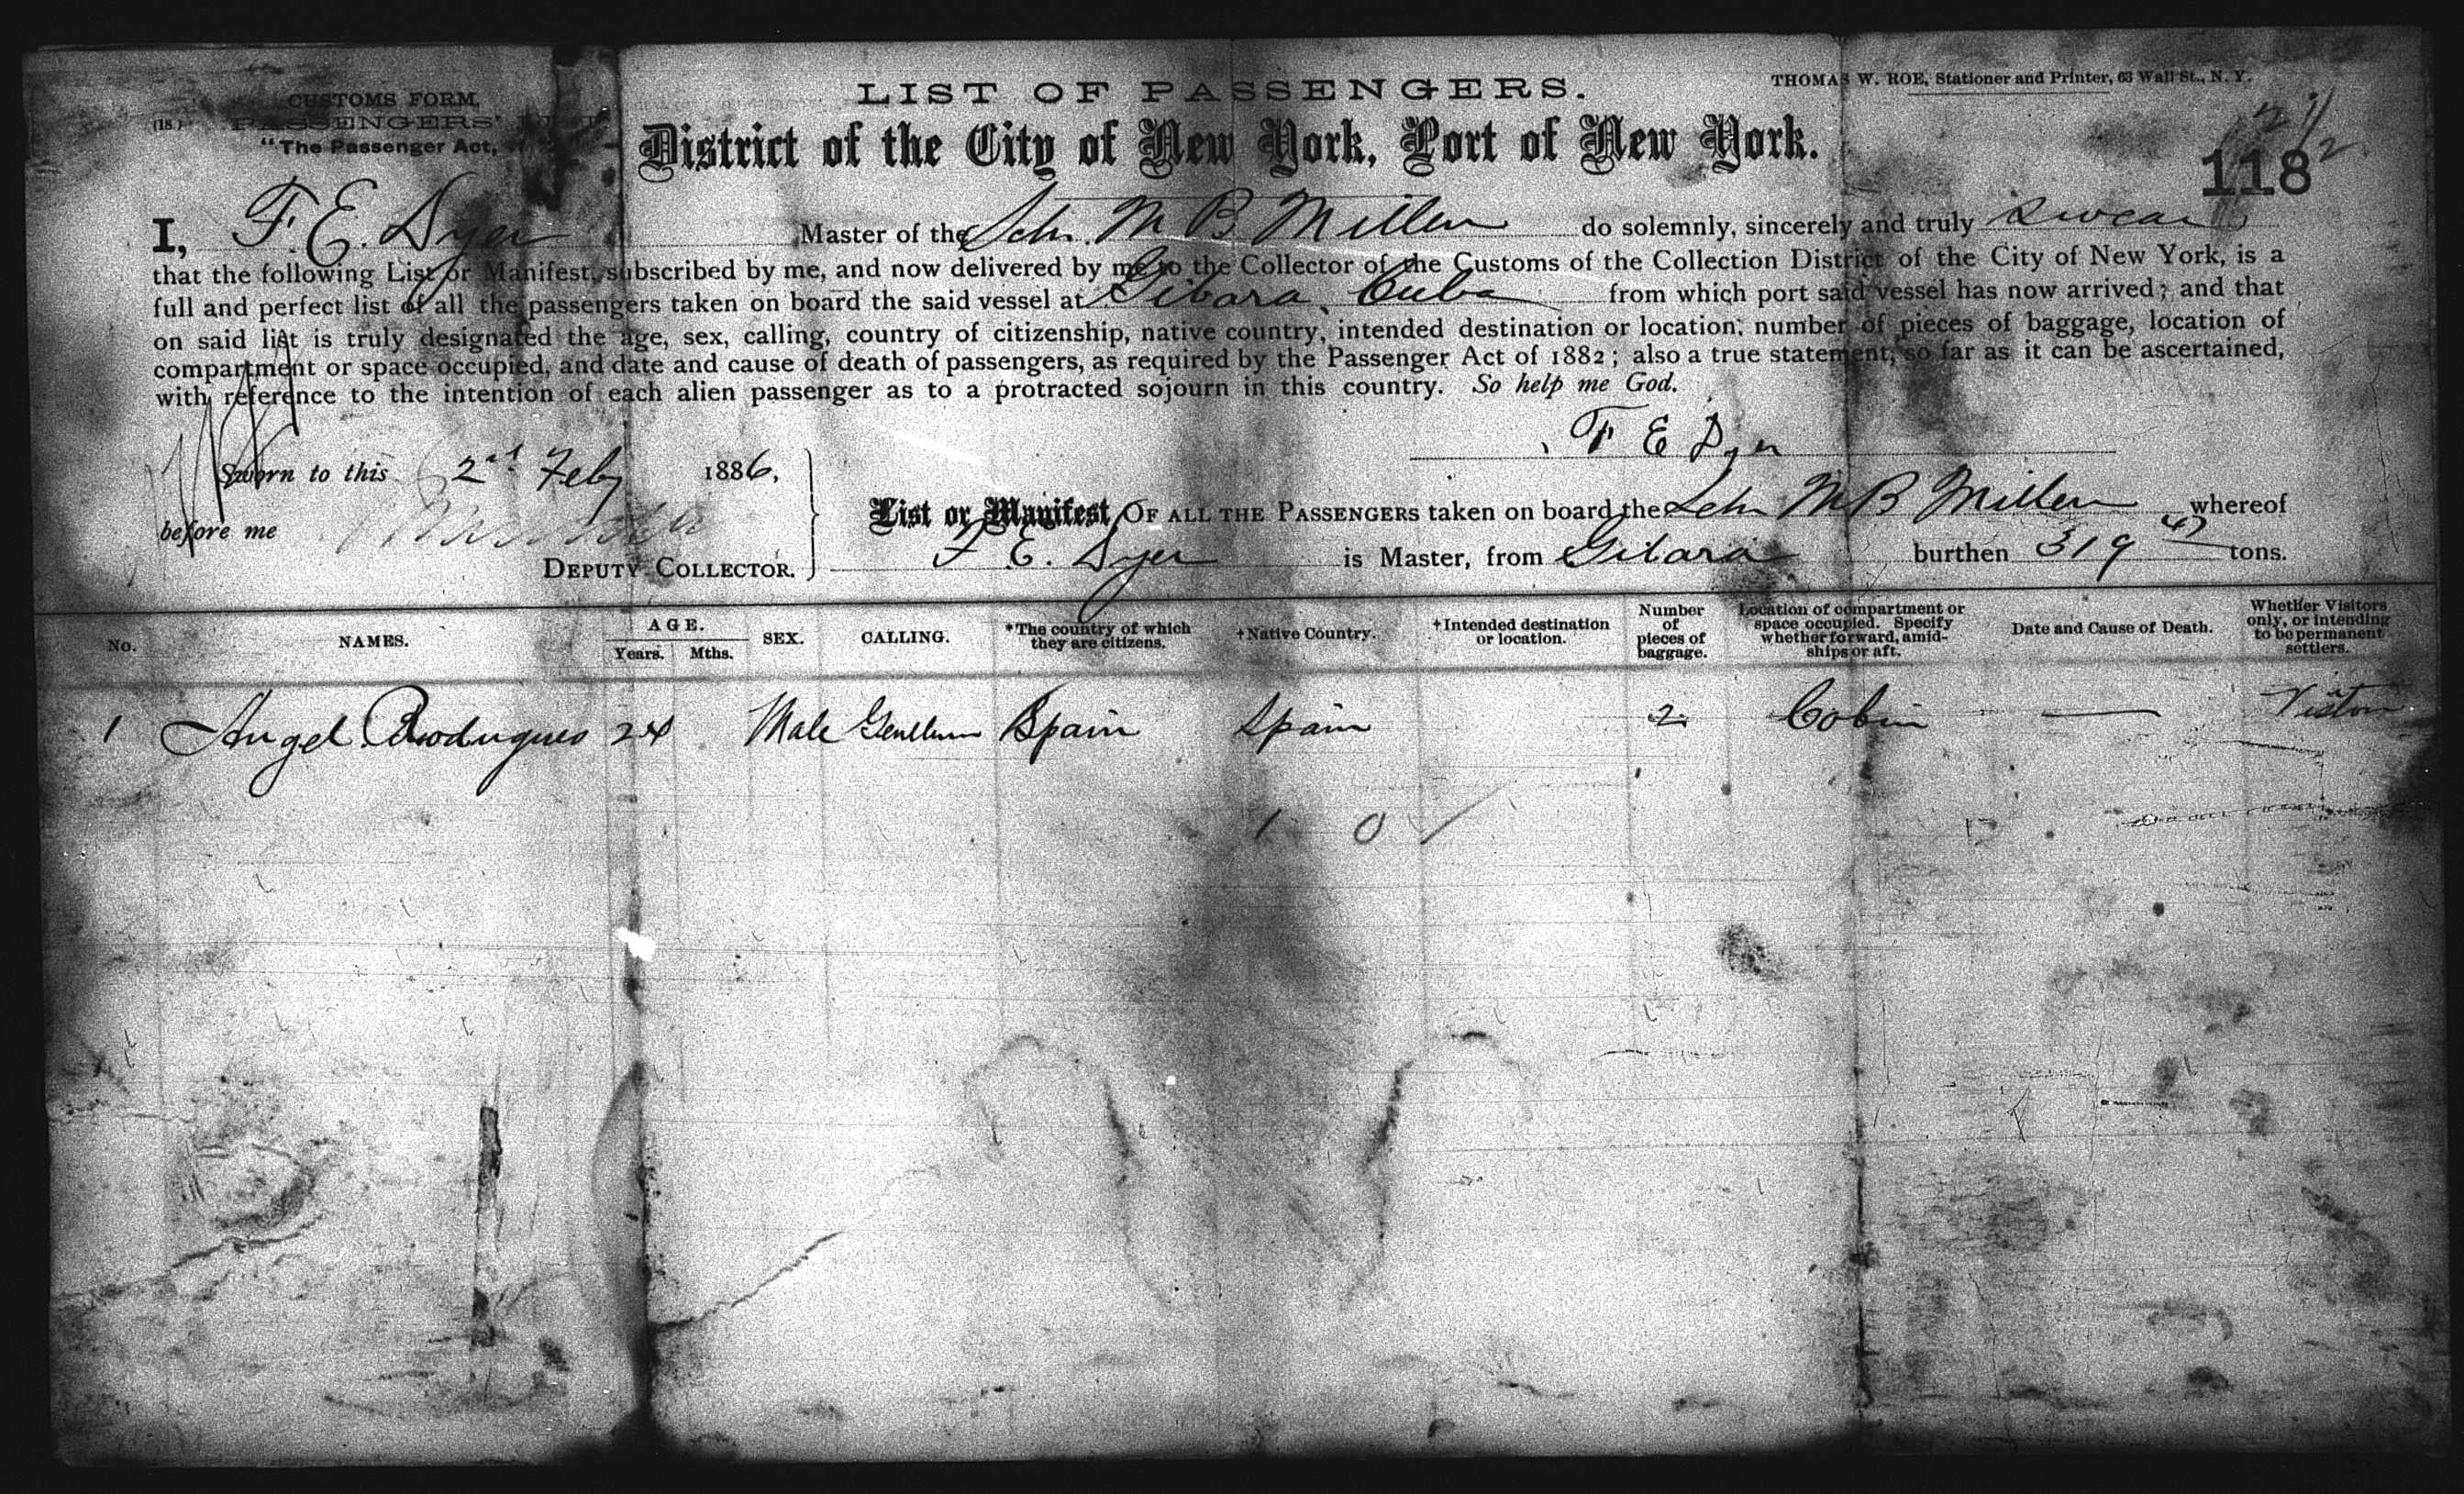 CUSTOMS FORM,
(18.) PASSENGERS' LIST
"The Passenger Act,
LIST OF PASSENGERS.
THOMAS W. ROE, Stationer and Printer, 63 Wall St., N. Y.
District of the City of New York, Port of New York.
118
I, F. E. Dyer Master of the Schr. M B Millen do solemnly, sincerely and truly swear
that the following List or Manifest, subscribed by me, and now delivered by me to the Collector of the Customs of the Collection District of the City of New York, is a
full and perfect list of all the passengers taken on board the said vessel at Gibara, Cuba from which port said vessel has now arrived; and that
on said list is truly designated the age, sex, calling, country of citizenship, native country, intended destination or location; number of pieces of baggage, location of
compartment or space occupied, and date and cause of death of passengers, as required by the Passenger Act of 1882; also a true statement, so far as it can be ascertained,
with reference to the intention of each alien passenger as to a protracted sojourn in this country. So help me God.
F E Dyer
Sworn to this 2nd Feby 1886,
before me
DEPUTY COLLECTOR.
List or Manifest OF ALL THE PASSENGERS taken on board the Schr M B Millen whereof
F E. Dyer is Master, from Gibara burthen 319 47 tons.
No. NAMES. AGE. Years. Mths. SEX. CALLING. *The country of which they are citizens. †Native Country. †Intended destination or location. Number of pieces of baggage. Location of compartment or space occupied. Specify whether forward, amidships or aft. Date and Cause of Death. Whether Visitors only, or intending to be permanent settlers.
1 Angel Rodugues 24 Male Gentlum Spain Spain 2 Cabin — Visitor
1 0